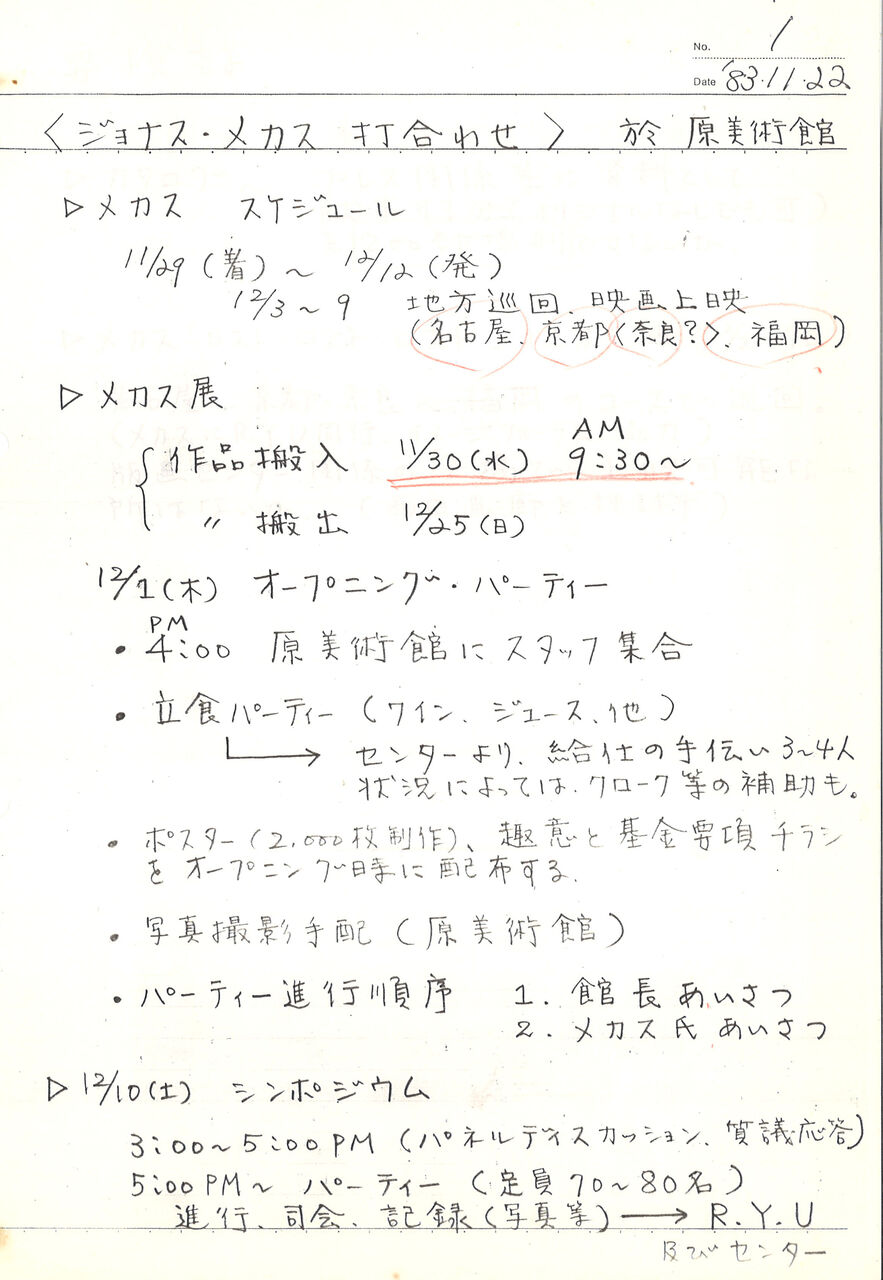 No. 1
Date '83.11.22
〈ジョナス・メカス 打合わせ〉 於 原美術館
▷メカス スケジュール
11/29(着)〜12/12(発)
12/3〜9 地方巡回、映画上映
(名古屋、京都〈奈良?〉、福岡)
▷メカス展
作品搬入 11/30(水) AM 9:30〜
〃 搬出 12/25(日)
12/1(木) オープニング・パーティー
・PM 4:00 原美術館にスタッフ集合
・立食パーティー(ワイン、ジュース、他)
センターより、給仕の手伝い3〜4人
状況によっては、クローク等の補助も。
・ポスター(2,000枚制作)、趣意と基金要項チラシ
をオープニング時に配布する.
・写真撮影手配(原美術館)
・パーティー進行順序 1. 館長あいさつ
2. メカス氏あいさつ
▷12/10(土) シンポジウム
3:00〜5:00PM(パネルディスカッション、質議応答)
5:00PM〜 パーティー(定員70〜80名)
進行、司会、記録(写真等)→ R.Y.U
及びセンター